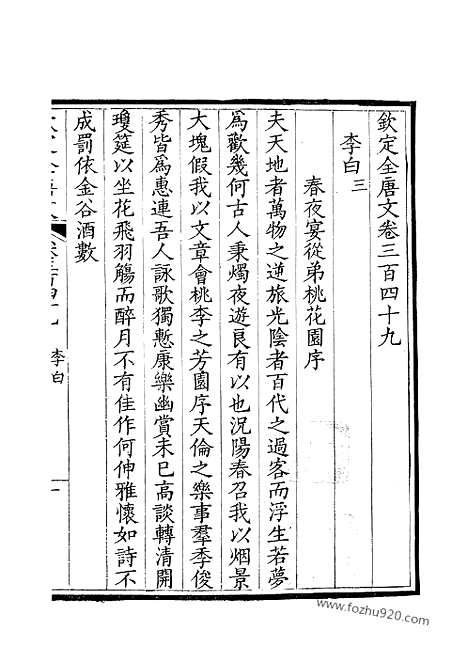 欽定全唐文卷三百四十九
李白三
春夜宴從弟桃花園序
夫天地者萬物之逆旅光陰者百代之過客而浮生若夢
為歡幾何古人秉燭夜遊良有以也況陽春召我以烟景
大塊假我以文章會桃李之芳園序天倫之樂事羣季俊
秀皆為惠連吾人詠歌獨慙康樂幽賞未已高談轉清開
瓊筵以坐花飛羽觴而醉月不有佳作何伸雅懷如詩不
成罰依金谷酒數
李白
一
www.fozhu920.com